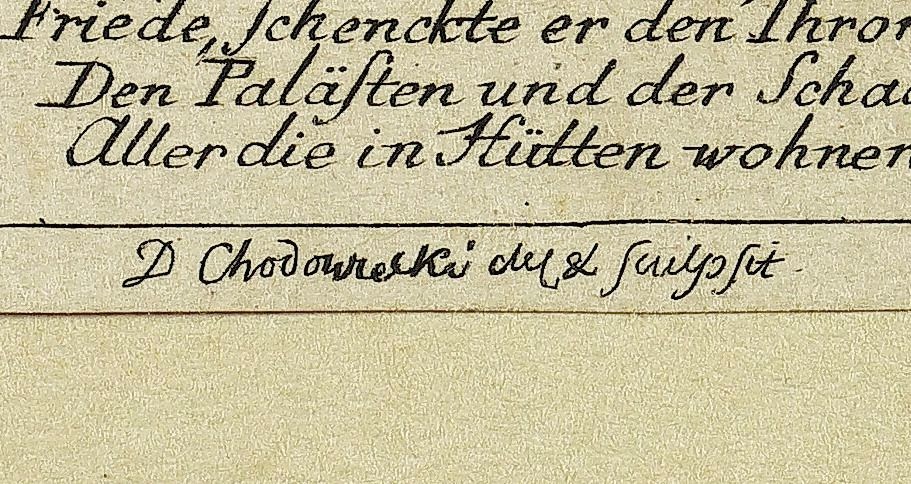 Friede, ſchenckte er den Thron
Den Paläſten und der Scha
Aller die in Hütten wohnen
D Chodowiecki del & ſculpſit.